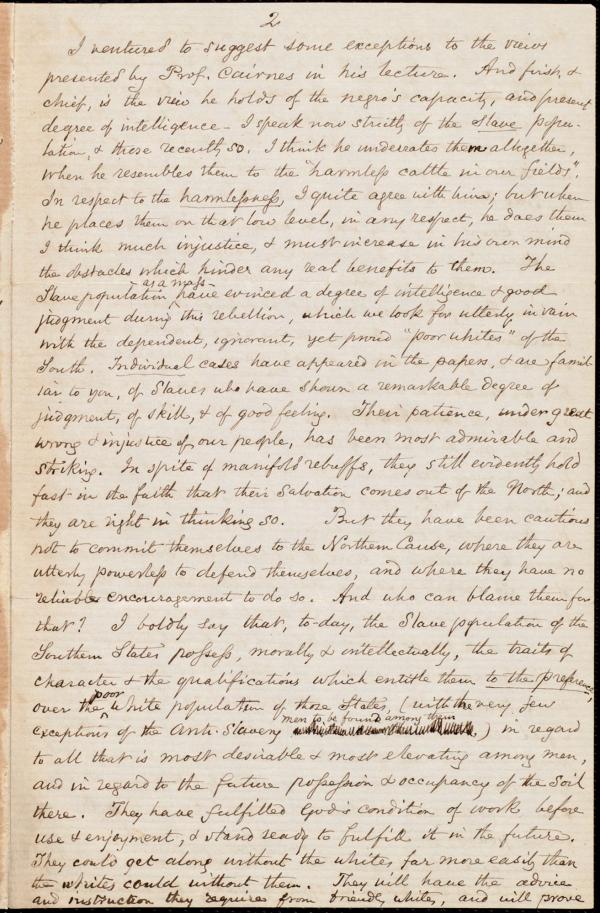 2
I ventured to suggest some exceptions to the views
presented by Prof. Cairnes in his lecture. And first, &
chief, is the view he holds of the negro's capacity, and present
degree of intelligence - I speak now strictly of the Slave popu-
lation, & those recently so. I think he underrates them altogether,
when he resembles them to the "harmless cattle in our fields".
In respect to the harmlessness, I quite agree with him; but when
he places them on that low level, in any respect, he does them
I think much injustice, & must increase in his own mind
the obstacles which hinder any real benefits to them. The
as a mass
Slave population have evinced a degree of intelligence & good
judgment during this rebellion, which we look for utterly in vain
with the dependent, ignorant, yet proud "poor whites" of the
South. Individual cases have appeared in the papers, & are famil-
iar to you, of Slaves who have shown a remarkable degree of
judgment, of skill, & of good feeling. Their patience, under great
wrong & injustice of our people, has been most admirable and
striking. In spite of manifold rebuffs, they still evidently hold
fast in the faith that their Salvation comes out of the North; and
they are right in thinking so. But they have been cautious
not to commit themselves to the Northern Cause, where they are
utterly powerless to defend themselves, and where they have no
reliable encouragement to do so. And who can blame them for
that? I boldly say that, to-day, the Slave population of the
Southern States possess, morally & intellectually, the traits of
character & the qualifications which entitle them to the preference,
poor
over the white population of those States, (with the very few
men to be found among them
exceptions of the Anti-Slavery ) in regard
to all that is most desirable & most elevating among men,
and in regard to the future possession & occupancy of the Soil
there. They have fulfilled God's condition of work before
use & enjoyment, & stand ready to fulfill it in the future.
They could get along without the whites, far more easily than
the whites could without them. They will have the advice
and instruction they require from friendly whites, and will prove